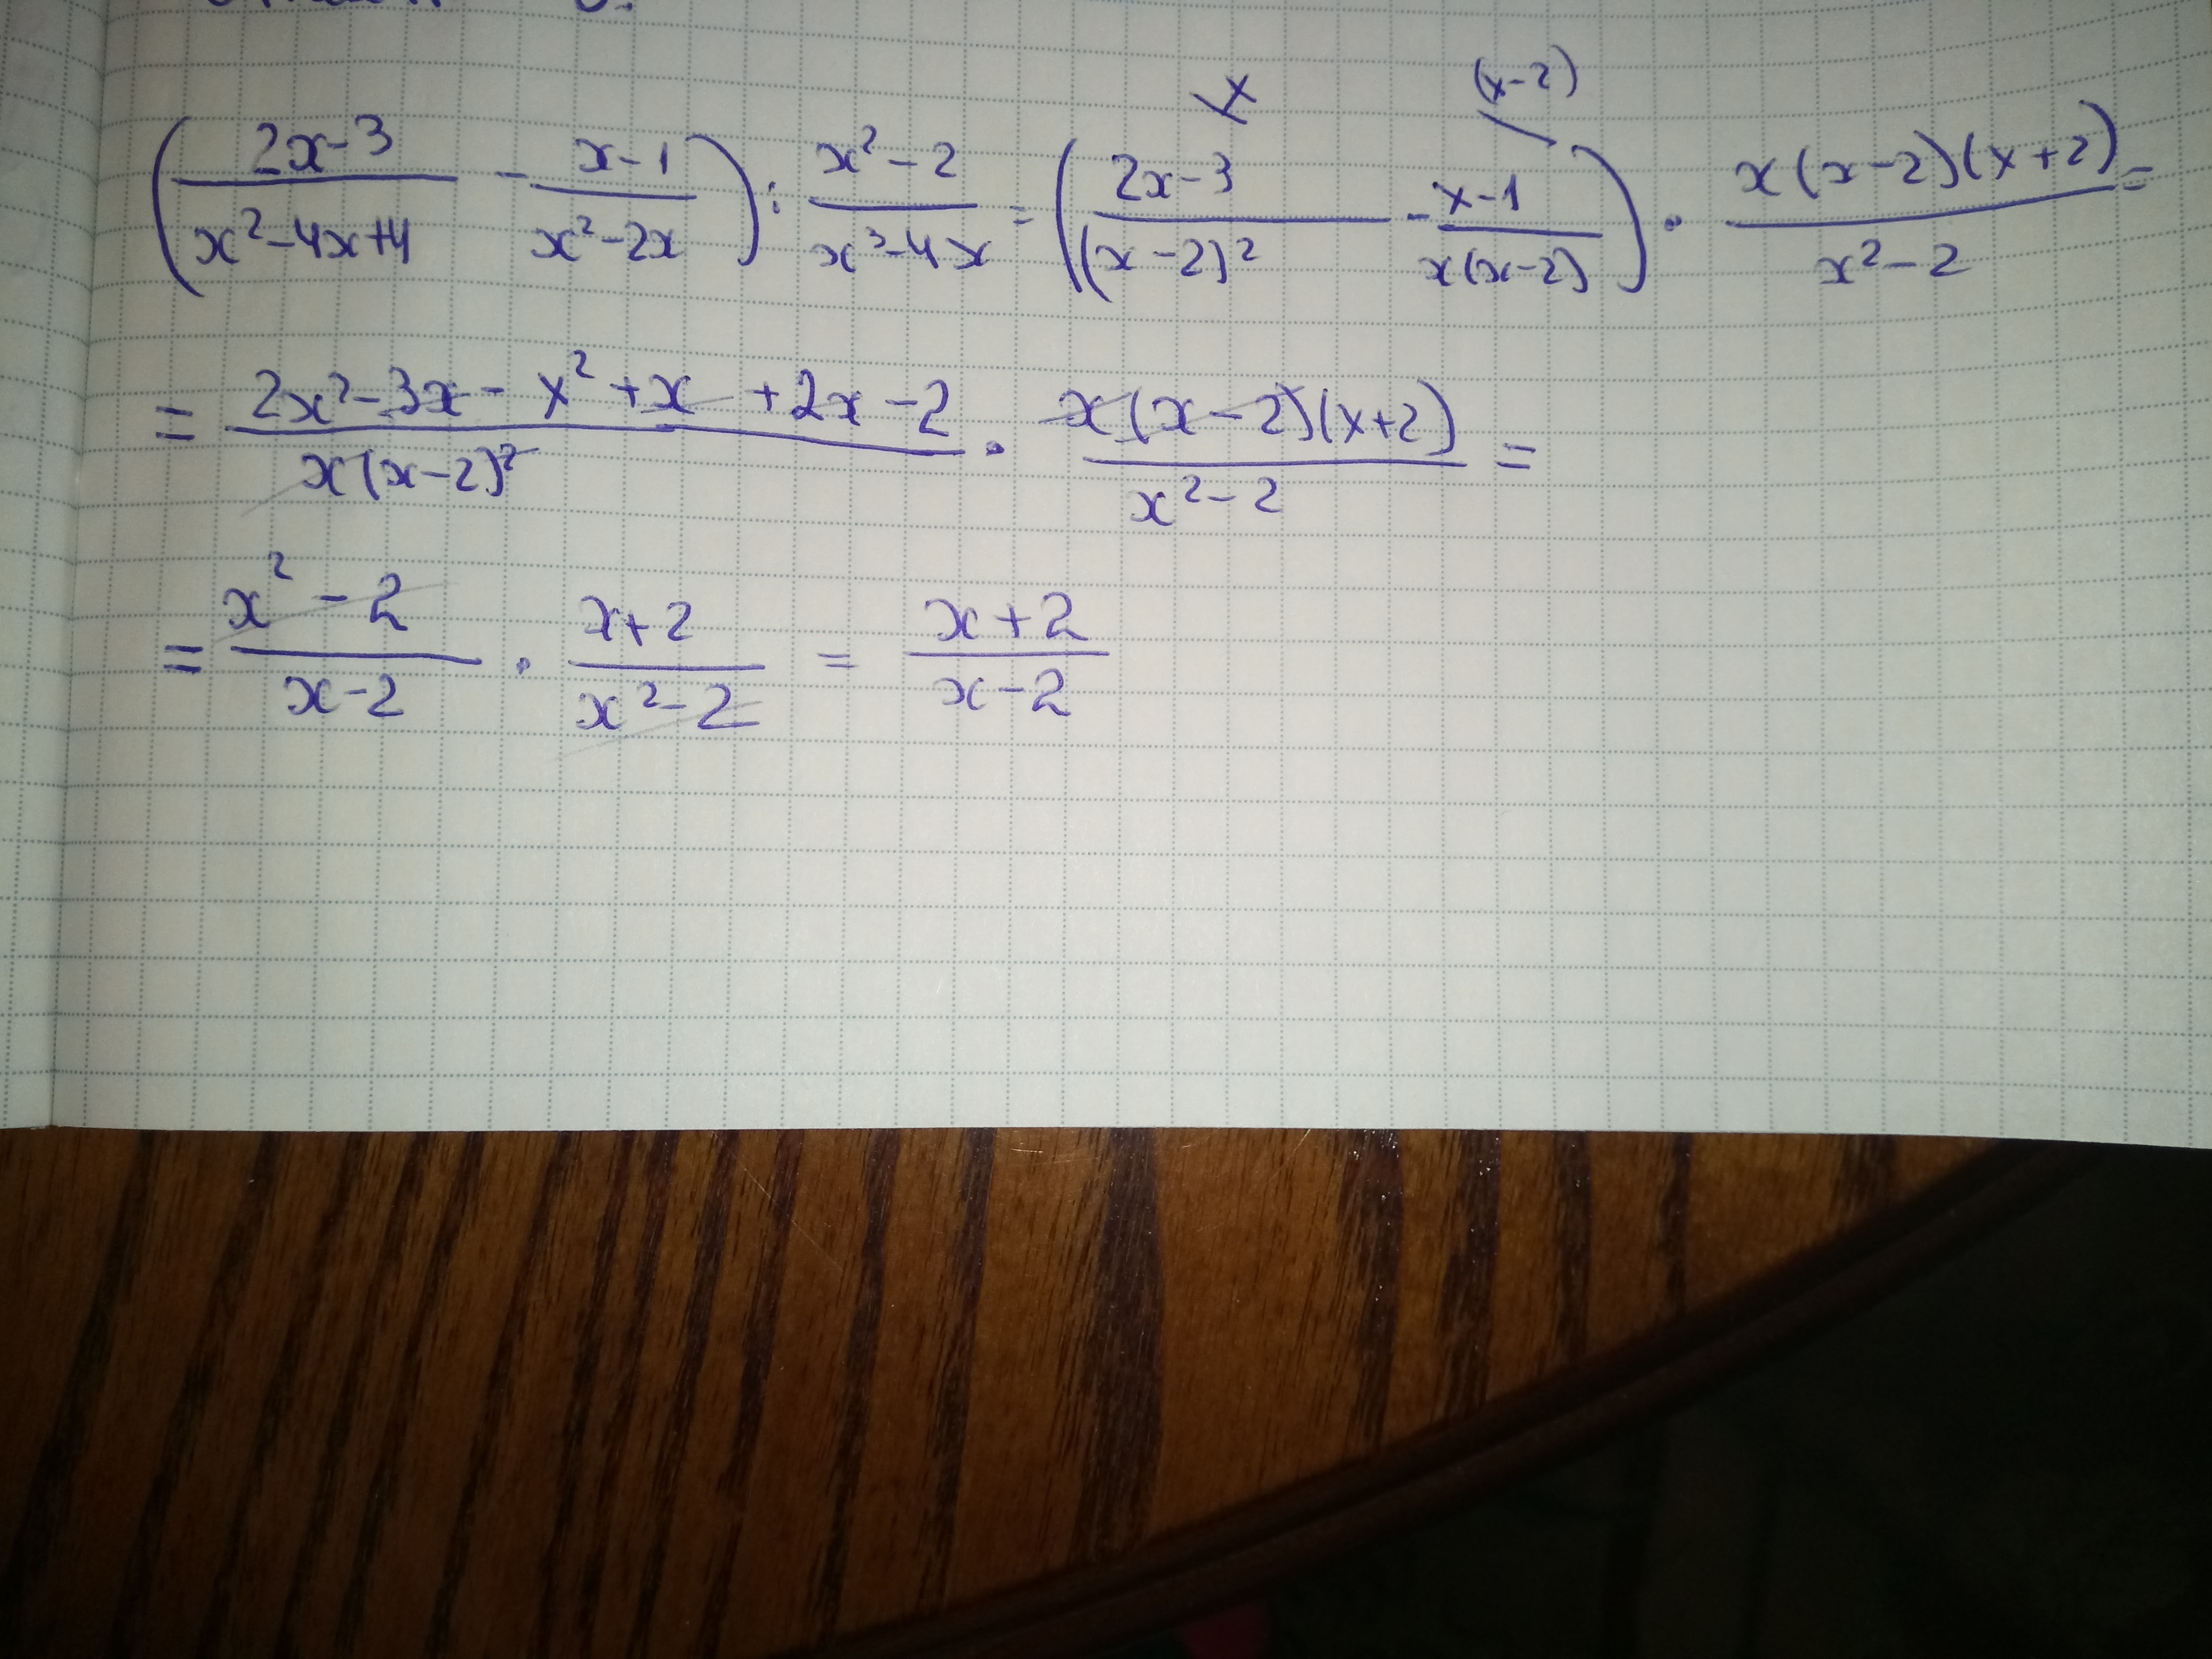 x (x-2)
(2x-3/x²-4x+4 - x-1/x²-2x) : x²-2/x³-4x = (2x-3/(x-2)² - x-1/x(x-2)) · x(x-2)(x+2)/x²-2 =
= 2x²-3x-x²+x+2x-2/x(x-2)² · x(x-2)(x+2)/x²-2 =
= x²-2/x-2 · x+2/x²-2 = x+2/x-2